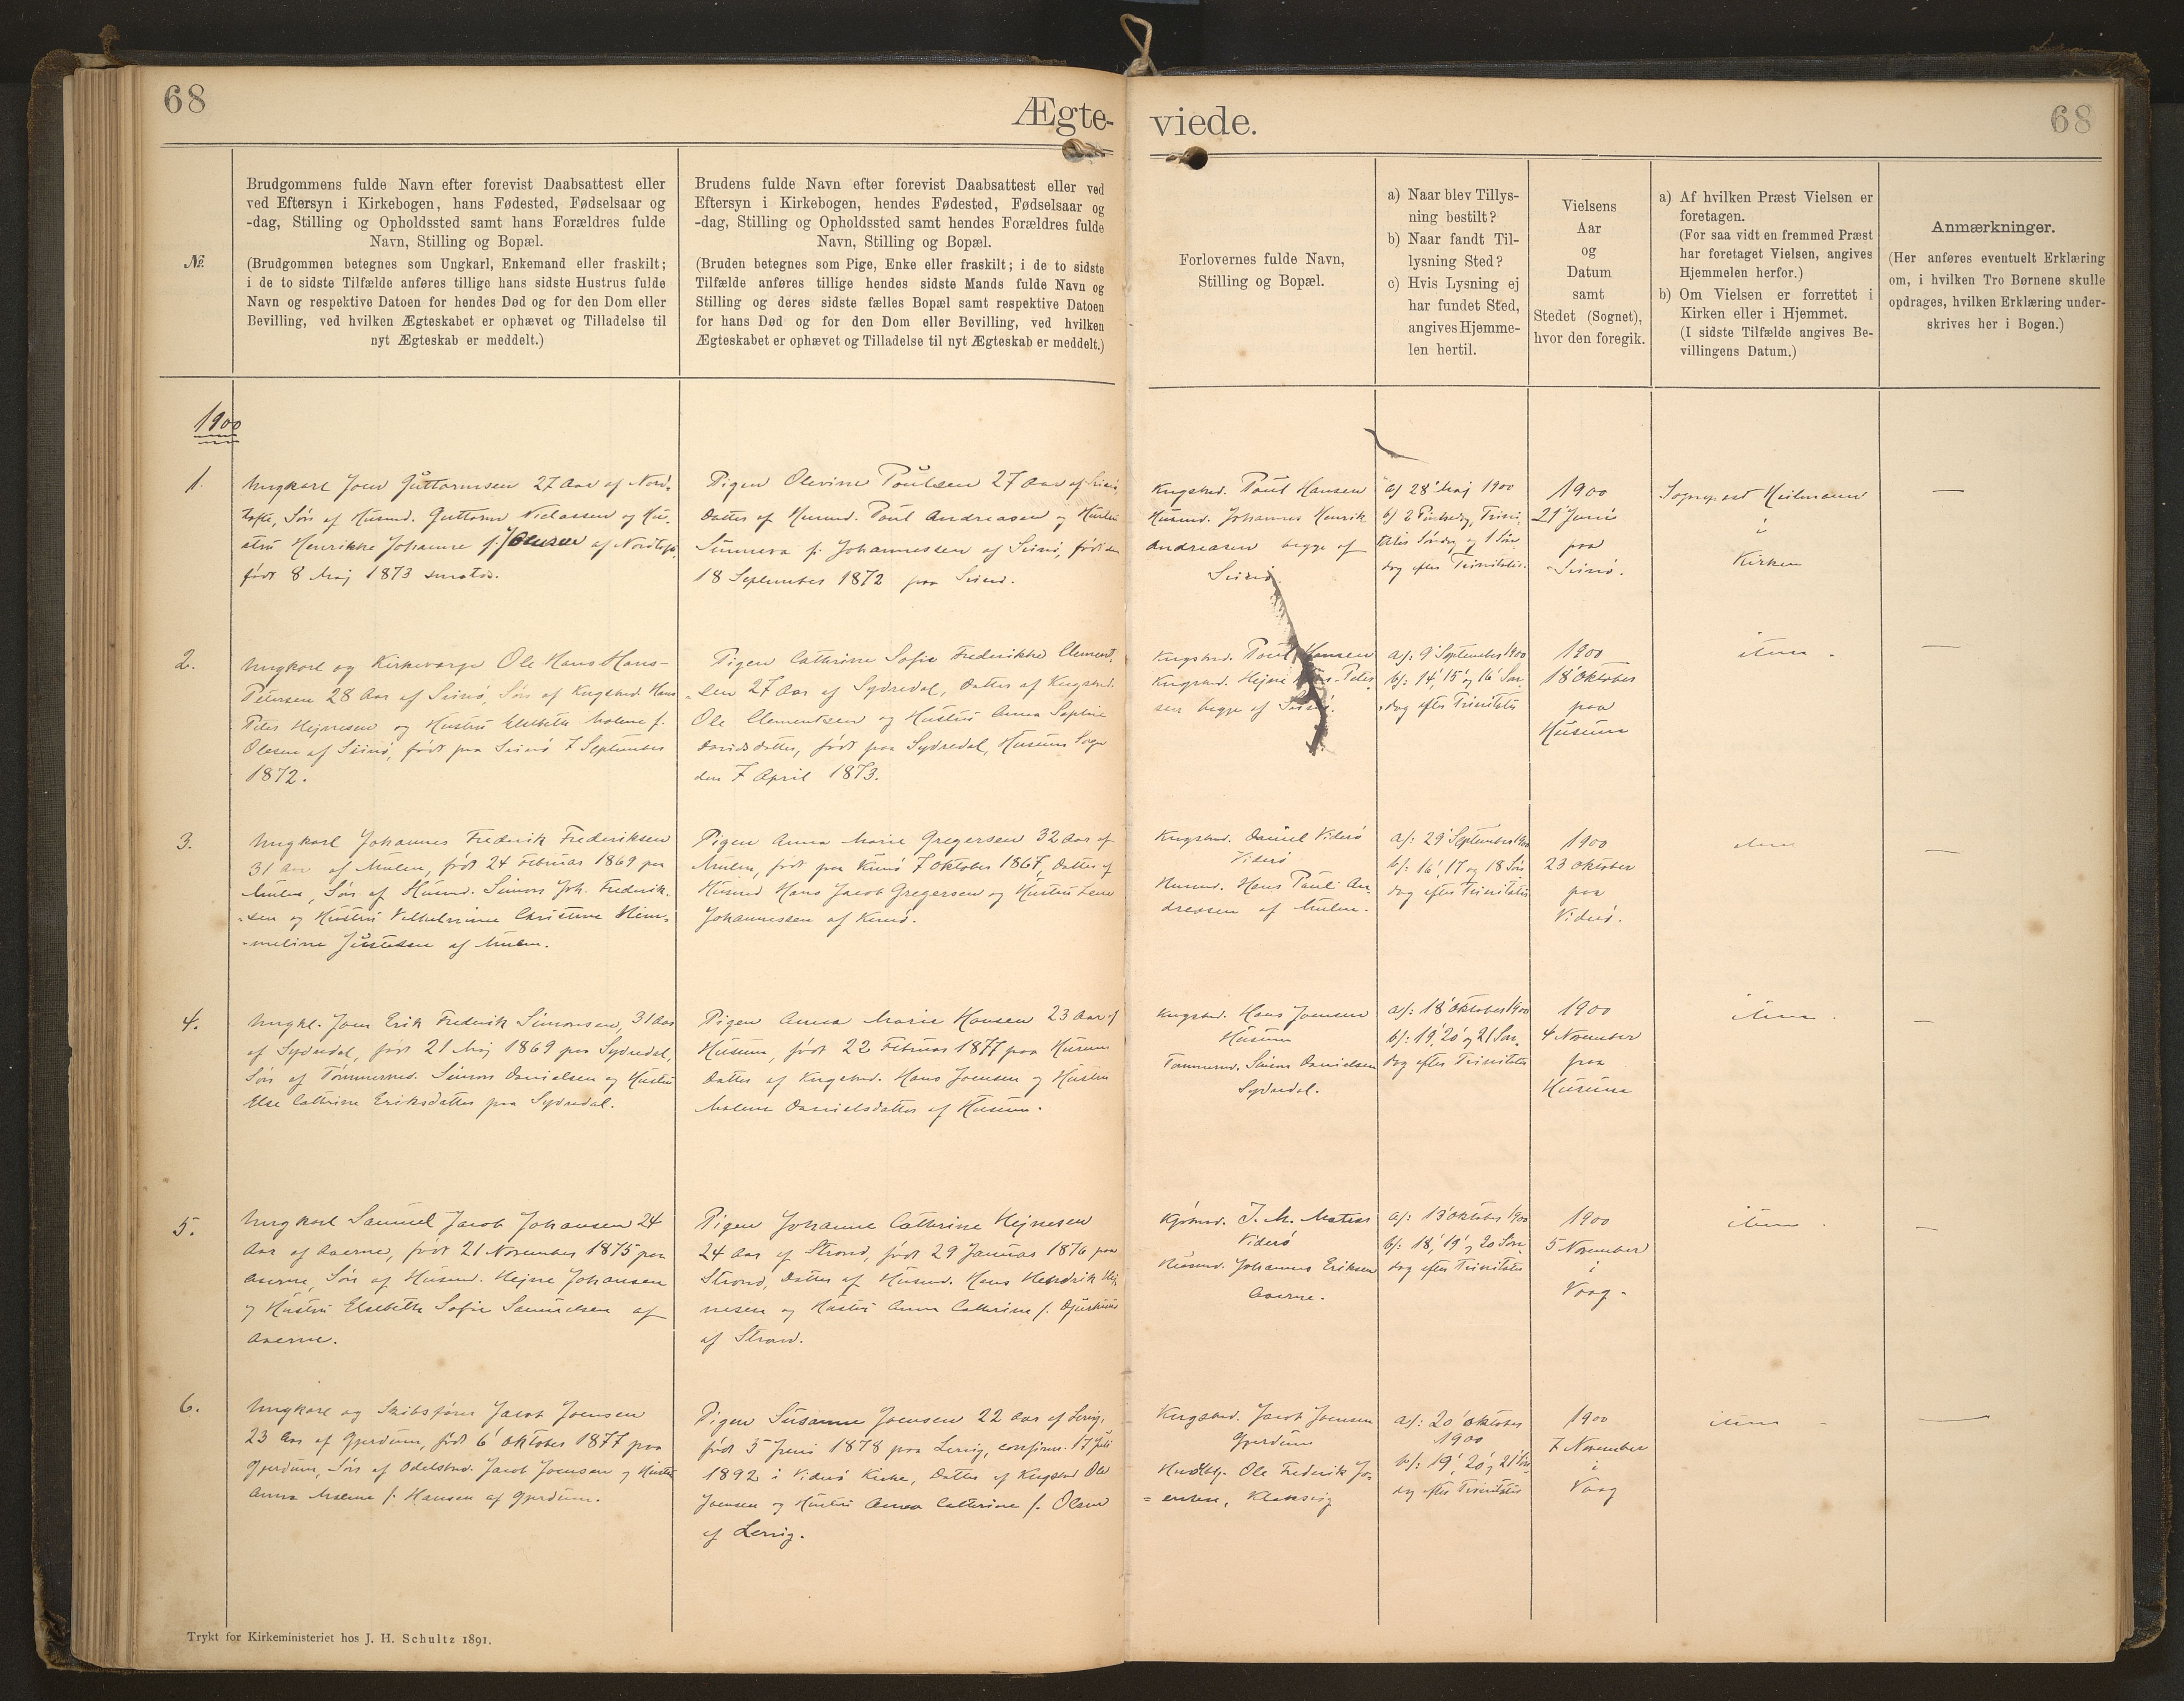 68
Ægte-
viede.
68
№
Brudgommens fulde Navn efter forevist Daabsattest eller
ved Eftersyn i Kirkebogen, hans Fødested, Fødselsaar og
-dag, Stilling og Opholdssted samt hans Forældres fulde
Navn, Stilling og Bopæl.
(Brudgommen betegnes som Ungkarl, Enkemand eller fraskilt;
i de to sidste Tilfælde anføres tillige hans sidste Hustrus fulde
Navn og respektive Datoen for hendes Død og for den Dom eller
Bevilling, ved hvilken Ægteskabet er ophævet og Tilladelse til
nyt Ægteskab er meddelt.)
Brudens fulde Navn efter forevist Daabsattest eller ved
Eftersyn i Kirkebogen, hendes Fødested, Fødselsaar og
-dag, Stilling og Opholdssted samt hendes Forældres fulde
Navn, Stilling og Bopæl.
(Bruden betegnes som Pige, Enke eller fraskilt; i de to sidste
Tilfælde anføres tillige hendes sidste Mands fulde Navn og
Stilling og deres sidste fælles Bopæl samt respektive Datoen
for hans Død og for den Dom eller Bevilling, ved hvilken
Ægteskabet er ophævet og Tilladelse til nyt Ægteskab er meddelt.)
Forlovernes fulde Navn,
Stilling og Bopæl.
a) Naar blev Tillys-
ning bestilt?
b) Naar fandt Til-
lysning Sted?
c) Hvis Lysning ej
har fundet Sted,
angives Hjemme-
len hertil.
Vielsens
Aar
og
Datum
samt
Stedet (Sognet),
hvor den foregik.
a) Af hvilken Præst Vielsen er
foretagen.
(For saa vidt en fremmed Præst
har foretaget Vielsen, angives
Hjemmelen herfor.)
b) Om Vielsen er forrettet i
Kirken eller i Hjemmet.
(I sidste Tilfælde angives Be-
villingens Datum.)
Anmærkninger.
(Her anføres eventuelt Erklæring
om, i hvilken Tro Børnene skulle
opdrages, hvilken Erklæring under-
skrives her i Bogen.)
1900
1.
Ungkarl Joen Guttormsen 27 Aar af Nord-
tofte, Søn af Husmd. Guttorm Niclassen og Hu-
stru Henrikke Johanne f. Joensen af Nordtofte,
født 8 Maj 1873 smstds.
Pigen Olevine Poulsen 27 Aar af Svinø,
Datter af Husmd. Poul Andreasen og Hustru
Sunneva f. Johannessen af Svinø, født den
18 September 1872 paa Svinø.
Kngsbd. Poul Hansen
Husmd. Johannes Henrik
Andreasen begge af
Svinø.
a/ 28' Maj 1900
b/ 2 Pinsedag, Trini-
tatis Søndag og 1 Søn-
dag efter Trinitatis.
1900
21 Juni
paa
Svinø.
Sognepræst Heilmann
i
Kirken
—
2.
Ungkarl og Kirkeværge Ole Hans Hans-
Petersen 28 Aar af Svinø, Søn af Kngsbd. Hans
Peter Hejnesen og Hustru Elsebeth Malene f.
Olesen af Svinø, født paa Svinø 7 September
1872.
Pigen Cathrine Sofie Frederikke Clement-
sen 27 Aar af Sydredal, Datter af Kngsbd.
Ole Clementsen og Hustru Anna Sophie
Davidsdatter, født paa Sydredal, Husum Sogn
den 7 April 1873.
Kngsbd. Poul Hansen
Kngsbd. Hejne Hans-Peter-
sen begge af Svinø.
a/: 9' September 1900
b/: 14', 15' og 16' Søn-
dag efter Trinitatis
1900
18' Oktober
paa
Husum
item.
—
3.
Ungkarl Johannes Frederik Frederiksen
31 Aar af Mulen, født 24 Februar 1869 paa
Mulen, Søn af Husmd. Simon Joh. Frederik-
sen og Hustru Vilhelmine Christine Him-
meline Justesen af Mulen.
Pigen Anna Marie Gregersen 32 Aar af
Mulen, født paa Kunø 7 Oktober 1867, Datter af
Husmd Hans Jacob Gregersen og Hustru Lene
Johannessen af Kunø.
Kngsbd. Daniel Viderø
Viderø
Husmd. Hans Paul An-
dreasen af Mulen.
a/: 29' September 1900
b/: 16', 17 og 18 Søn-
dag efter Trinitatis
1900
23 Oktober
paa
Viderø.
item
—
4.
Ungkl. Joen Erik Frederik Simonsen, 31 Aar
af Sydredal, født 21 Maj 1869 paa Sydredal,
Søn af Tømmermd. Simon Danielsen og Hustru
Else Cathrine Eriksdatter paa Sydredal.
Pigen Anna Marie Hansen 23 Aar af
Husum, født 22 Februar 1877 paa Husum
Datter af Kngsbd. Hans Joensen og Hustru
Malene Danielsdatter af Husum.
Kngsbd. Hans Joensen
Husum
Tømmermd. Simon Danielsen
Sydredal.
a/: 18' Oktober 1900
b/: 19', 20' og 21 Søn-
dag efter Trinitatis
1900
4 November
paa
Husum
item.
—
5.
Ungkarl Samuel Jacob Johansen 24
Aar af Aaerne, født 21 November 1875 paa
Aaerne, Søn af Husmd. Hejne Johansen
og Hustru Elsebeth Sofie Samuelsen af
Aaerne.
Pigen Johanne Cathrine Hejnesen
24 Aar af Strond, født 29 Januar 1876 paa
Strond, Datter af Husmd. Hans Hendrik Hej-
nesen og Hustru Anna Cathrine f. Djurhuus
af Strond.
Kjøbmd. J. M. Matras
Viderø
Husmd. Johannes Eriksen
Aaerne.
a/: 13' Oktober 1900
b/: 18', 19' og 20 Søn-
dag efter Trinitatis
1900
5 November
i
Vaag.
item.
—
6.
Ungkarl og Skibsfører Jacob Joensen
23 Aar af Gjerdum, født 6' Oktober 1877 paa
Gjerdum, Søn af Odelsbd. Jacob Joensen og Hustru
Anna Malene f. Hansen af Gjerdum.
Pigen Susanne Joensen 22 Aar af Lervig,
født 5 Juni 1878 paa Lervig, confirm. 17 Juli
1892 i Viderø Kirke, Datter af Kngsbd Ole
Joensen og Hustru Anna Cathrine f. Olsen
af Lervig.
Kngsbd. Jacob Joensen
Gjerdum
Hndlbtj. Ole Frederik Jo-
=ensen, Klaksvig
a/: 20' Oktober
1900
b/: 19', 20' og 21' Søn-
dag efter Trinitatis
1900
7 November
i
Vaag
item -
—
Trykt for Kirkeministeriet hos J. H. Schultz 1891.